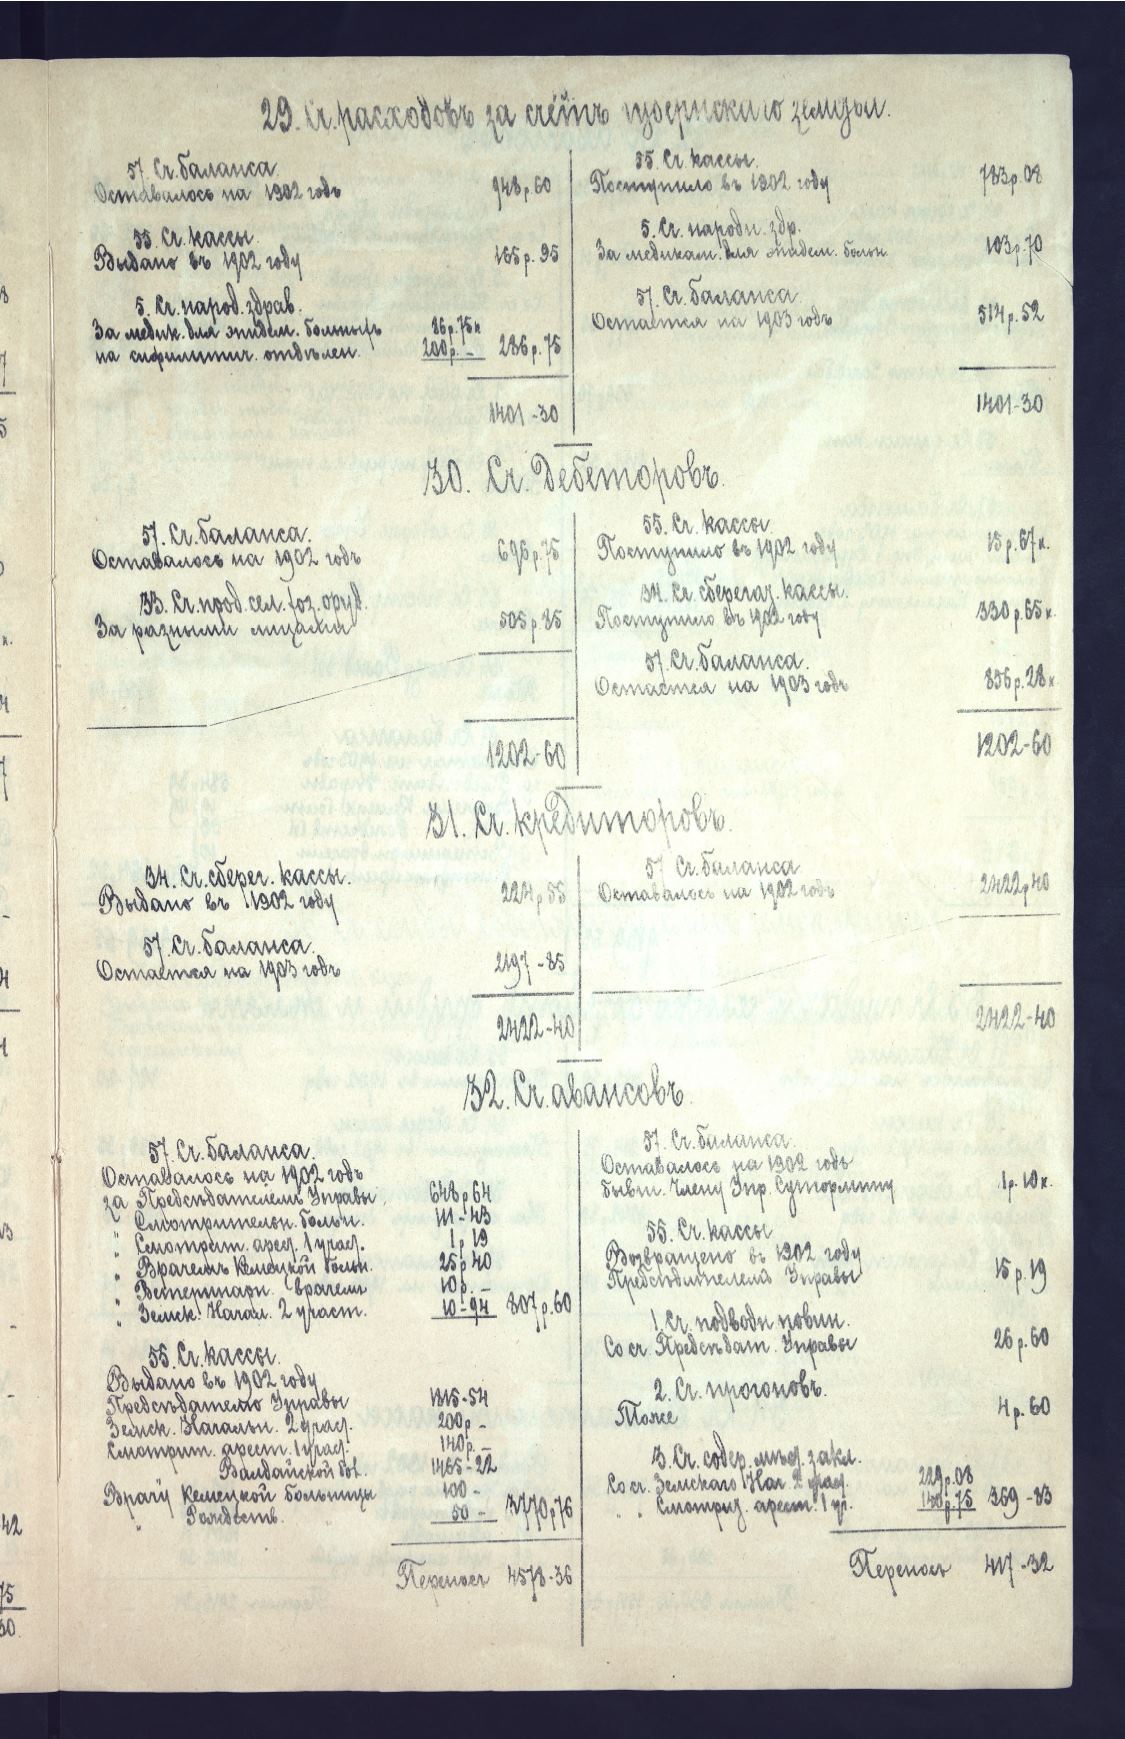 29. Сч. расходовъ за счётъ губернскаго земства.
57. Сч. баланса
Оставалось на 1902 годъ 948 р. 60
55. Сч. кассы.
Выдано въ 1902 году 165 р. 95
5. Сч. народ. здрав.
За медик. для эпидем. больныхъ 86 р. 75 к
на сифилитич. отдѣлен. 200 р. – 286 р. 75
1401-30
55. Сч. кассы.
Поступило въ 1902 году 783 р. 08
5. Сч. народн. здр.
За медикам. для эпидем. больн. 103 р. 70
57. Сч. баланса
Остается на 1903 годъ 514 р. 52
1401-30
30. Сч. Дебеторовъ.
57. Сч. баланса.
Оставалось на 1902 годъ 696 р. 75
33. Сч. прод. сел. хоз. оруд.
За разными лицами 505 р. 85
1202-60
55. Сч. кассы
Поступило въ 1902 году 15 р. 67 к.
34. Сч. сберегат. кассы.
Поступило въ 1902 году 330 р. 65 к.
57. Сч. баланса.
Остается на 1903 годъ 856 р. 28 к
1202-60
31. Сч. кредиторовъ.
34. Сч. сберег. кассы.
Выдано въ 1902 году 224 р 55
57. Сч. баланса.
Остается на 1903 годъ 2197-85
2422-40
57 Сч. баланса
Оставалось на 1902 годъ 2422 р 40
2422-40
32. Сч. авансовъ.
57. Сч. баланса.
Оставалось на 1902 годъ
за Предсѣдателемъ Управы 648 р 64
" Смотрительн. больн. 111-43
" Смотрит. арест. 1 участ. 1 р 19
" Врачемъ Кемецкой больн. 25 р 40
" Ветеринарн. врачемъ 10 р. –
" Земск. Начал. 2 участ. 10-94 807 р. 60
55. Сч. кассы.
Выдано въ 1902 году
Предсѣдателю Управы 1815-54
Земск. Начальн. 2 участ. 200 р –
Смотрит. арест. 1 участ. 140 р. –
Валдайской бол. 1465-22
Врачу Кемецкой больницы 100 –
" Рождеств. 50 – 3770 р 76
Переносъ 4578-36
57. Сч. баланса.
Оставалось на 1902 годъ
бывш. Члену Упр. Сутормину 1 р. 10 к.
55. Сч. кассы
Возвращено въ 1902 году
Предсѣдателемъ Управы 15 р. 19
1. Сч. подводн повин.
Со сч. Предсѣдат. Управы 26 р. 60
2. Сч. прогоновъ.
Тоже 4 р. 60
3. Сч. содер. мѣст. закл.
Со сч. Земскаго Нач 2 участ. 229 р. 08
" " Смотрит. арест. 1 уч. 140 р. 75 369-83
Переносъ 417-32